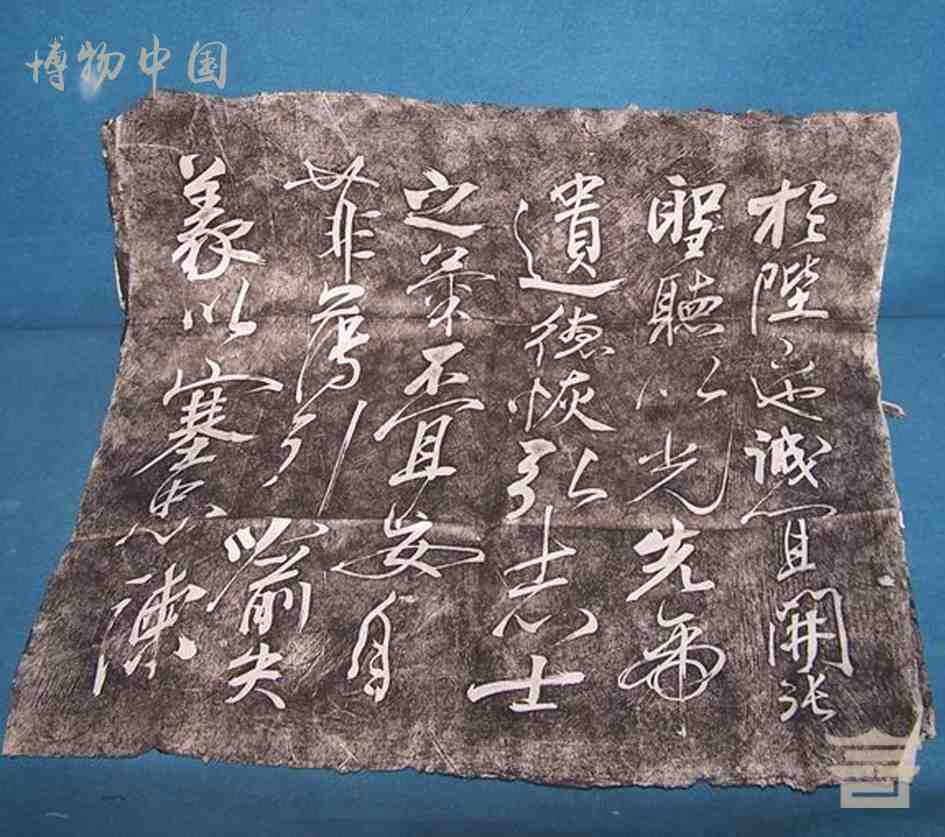 博物中国
於陛下也誠宜開張
聖聽以光先帝
遺德恢弘志士
之氣不宜妄自
菲薄引喻失
義以塞忠諫